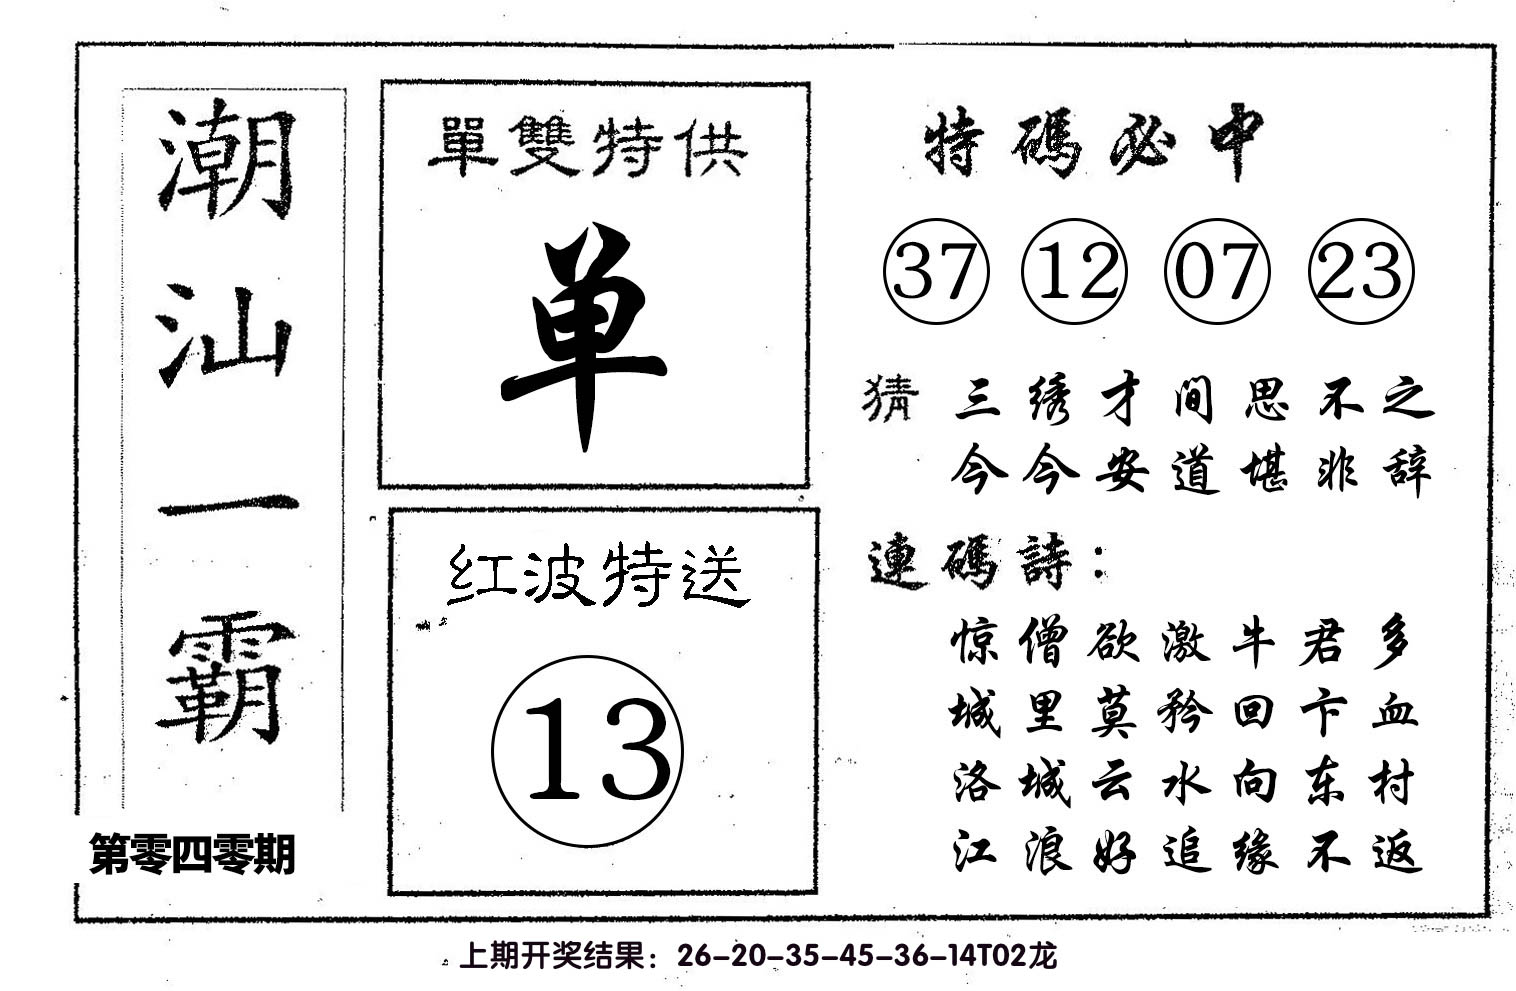 潮汕一霸
第零四零期
單雙特供
单
红波特送
13
特碼必中
37 12 07 23
猜 三绣才间思不之
今今安道堪非辞
連碼詩：
惊僧欲激牛君多
城里莫矜回卞血
洛城云水向东村
江浪好追缘不返
上期开奖结果：26-20-35-45-36-14T02龙